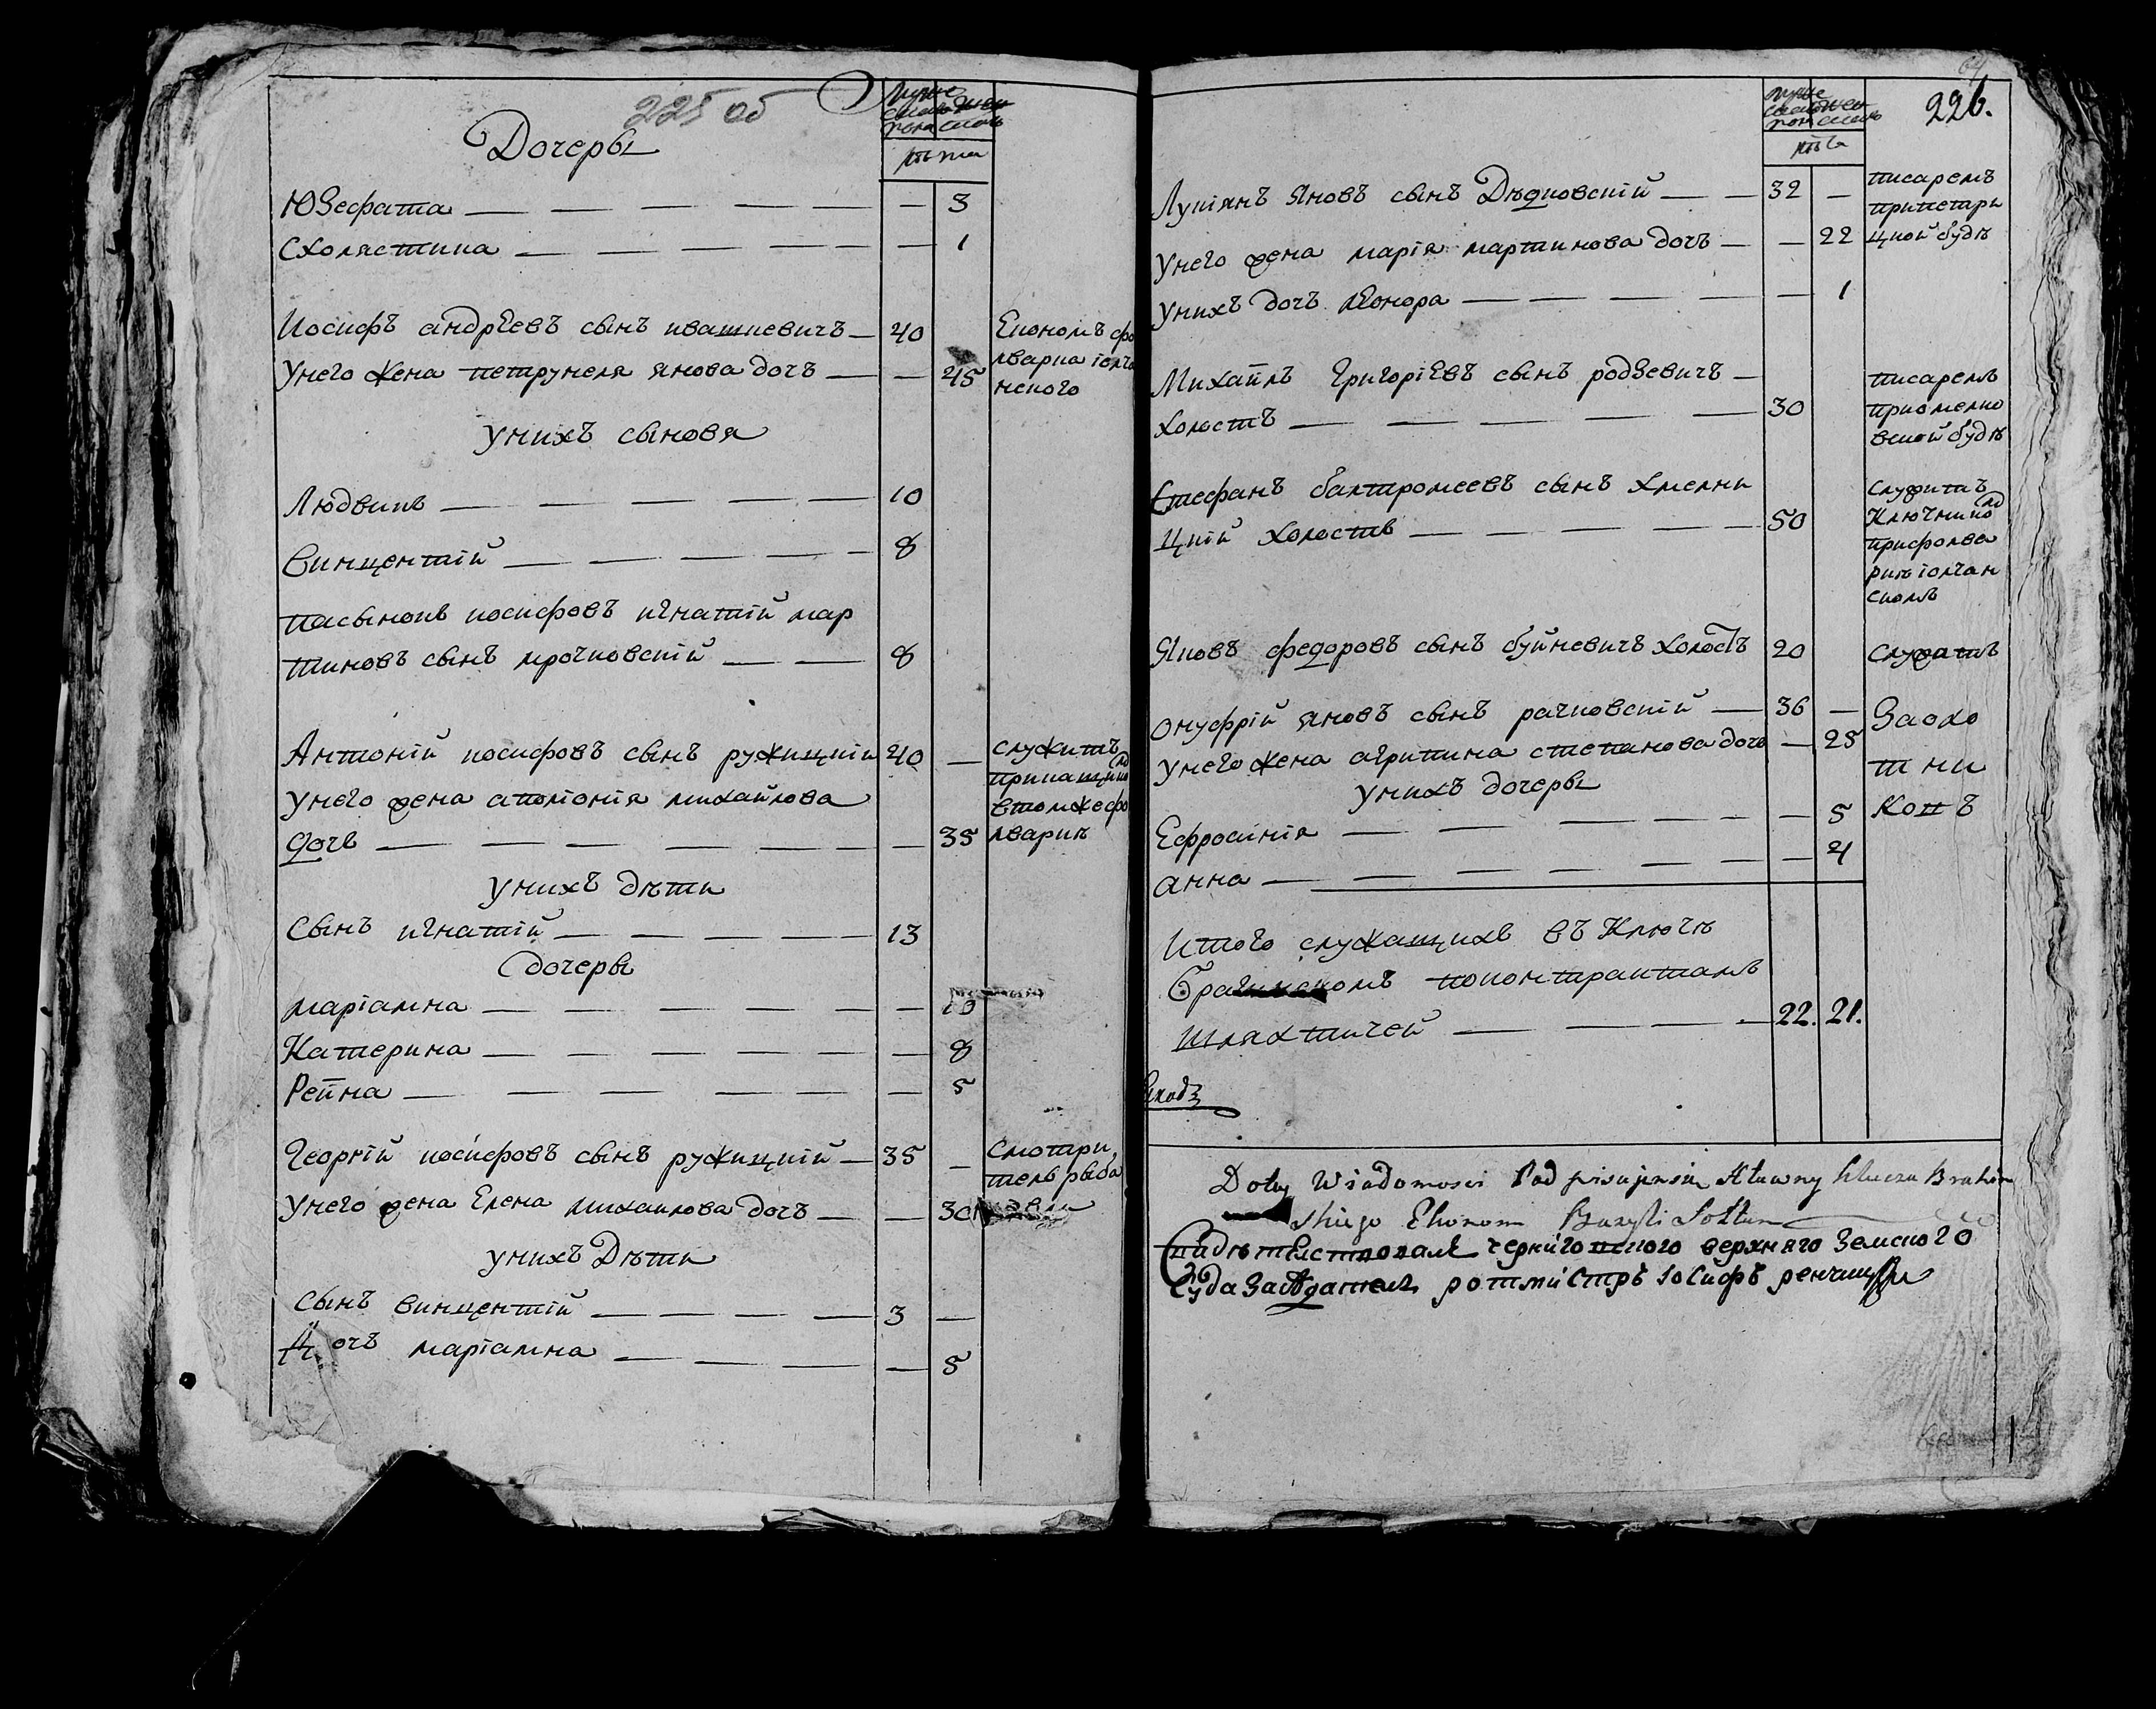 225 об
Дочеры
Мужеска пола
Женска
лѣта
Юзефата — 3
Схолястика — 1
Иосифъ андрѣевъ сынъ ивашкевичъ — 40
Економъ фо
лварка іолча
нского
Унего жена петрунеля янова дочъ — 45
Унихъ сыновя
Людвикъ — 10
Винцентій — 8
пасынокъ иосифовъ игнатій мар
тиновъ сынъ мрочковскій — 8
Антоній иосифовъ сынъ ружицкій 40 —
служитъ
втомжефо
лваркѣ
Унего жена аполіонія михайлова
дочъ — 35
Унихъ дѣти
Сынъ игнатій — 13
дочеры
маріамна — 10
Катерина — 8
Реина — 5
Георгій иосифовъ сынъ ружицкій — 35 —
Смотри
тель рыба
Унего жена Елена михаилова дочъ — 30
Унихъ Дѣти
Сынъ винцентій — 3 —
Дочъ маріамна — 5
226.
лѣта
Лукіянъ Яновъ сынъ Дѣдковскій — 32 —
писаремъ
припетри
цкой будѣ
Унего жена марія мартинова дочъ — 22
Унихъ дочъ леонора — 1
Михайлъ григоріевъ сынъ родзевичъ —
холостъ — 30
писаремъ
приомелко
вской будѣ
Стефанъ балтромеевъ сынъ Хмелни
цкій холостъ — 50
Служитъ
Ключнико
прифолва
ркѣ іолчан
скомъ
Яковъ федоровъ сынъ буйневичъ холостъ 20
Служитъ
Онуфрій яновъ сынъ рачковскій — 36 —
Заохо
тни
комъ
Унего жена агрипина степанова дочъ — 25
Унихъ дочеры
Ефросинія — 5
анна — 4
Итого служащихъ въ Ключѣ
Брагинскомъ поконтрактамъ
шляхтичей — 22. 21.
Do tey Wiadomosci Pod pisujensie Klucza Brahin
skiego Ekonom Bazyli Sołtan
Свидѣтелстповалъ черниговского верхняго Земского
Суда Засѣдатель ротмистръ Іосифъ